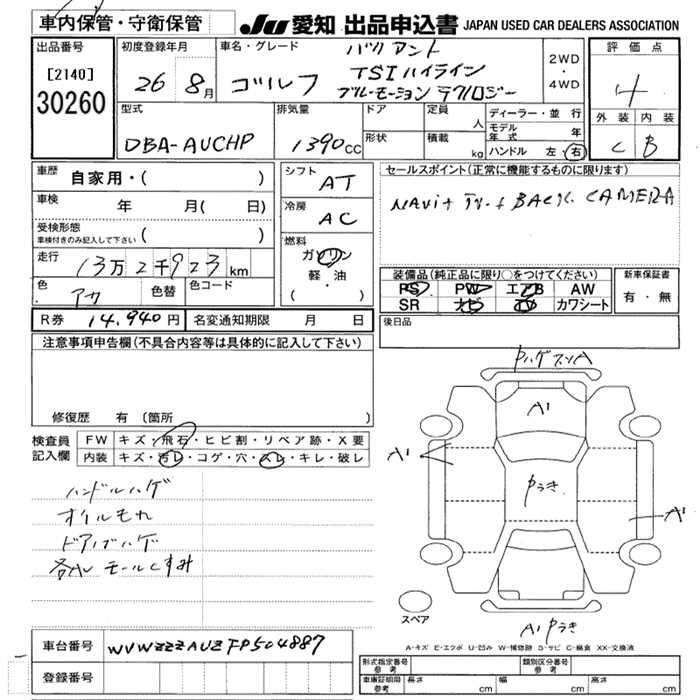 車内保管・守衛保管
JU 愛知 出品申込書 JAPAN USED CAR DEALERS ASSOCIATION
出品番号
[2140]
30260
初度登録年月
26 8月
車名・グレード
バリアント
ゴルフ TSI ハイライン
ブルーモーション テクノロジー
2WD
・
4WD
評価点
4
外装 内装
C B
型式
DBA-AUCHP
排気量
1390cc
ドア
形状
定員 人
積載 kg
ディーラー・並行
モデル年式 年
ハンドル 左・右
車歴 自家用・( )
車検 年 月( 日)
受検形態
車検付きのみ記入して下さい ( )
走行 13万2千923km
色 アカ 色替 色コード
シフト AT
冷房 AC
燃料
ガソリン
軽・油
( )
セールスポイント(正常に機能するものに限ります)
NAVi+ TV+BACK CAMERA
装備品(純正品に限り○をつけてください)
PS PW エアB AW
SR ナビ TV カワシート
新車保証書
有・無
R券 14,940円 名変通知期限 月 日
後日品
注意事項申告欄(不具合内容等は具体的に記入して下さい)
修復歴 有 (箇所 )
検査員記入欄
FW キズ・飛石・ヒビ割・リペア跡・X要
内装 キズ・汚レ・コゲ・穴・スレ・キレ・破レ
ハンドルハゲ
オイルモレ
ドアノブハゲ
各AV モールくすみ
PハゲスリA
A1
A1
Pうき
A1
A1 Pうき
スペア
A-キズ E-エクボ U-凹み W-補修跡 S-サビ C-腐食 XX-交換済
車台番号 WVWZZZAUZFP504887
登録番号
形式指定番号 参考
類別区分番号 参考
車庫証明期 参考 長さ cm 幅 cm 高さ cm